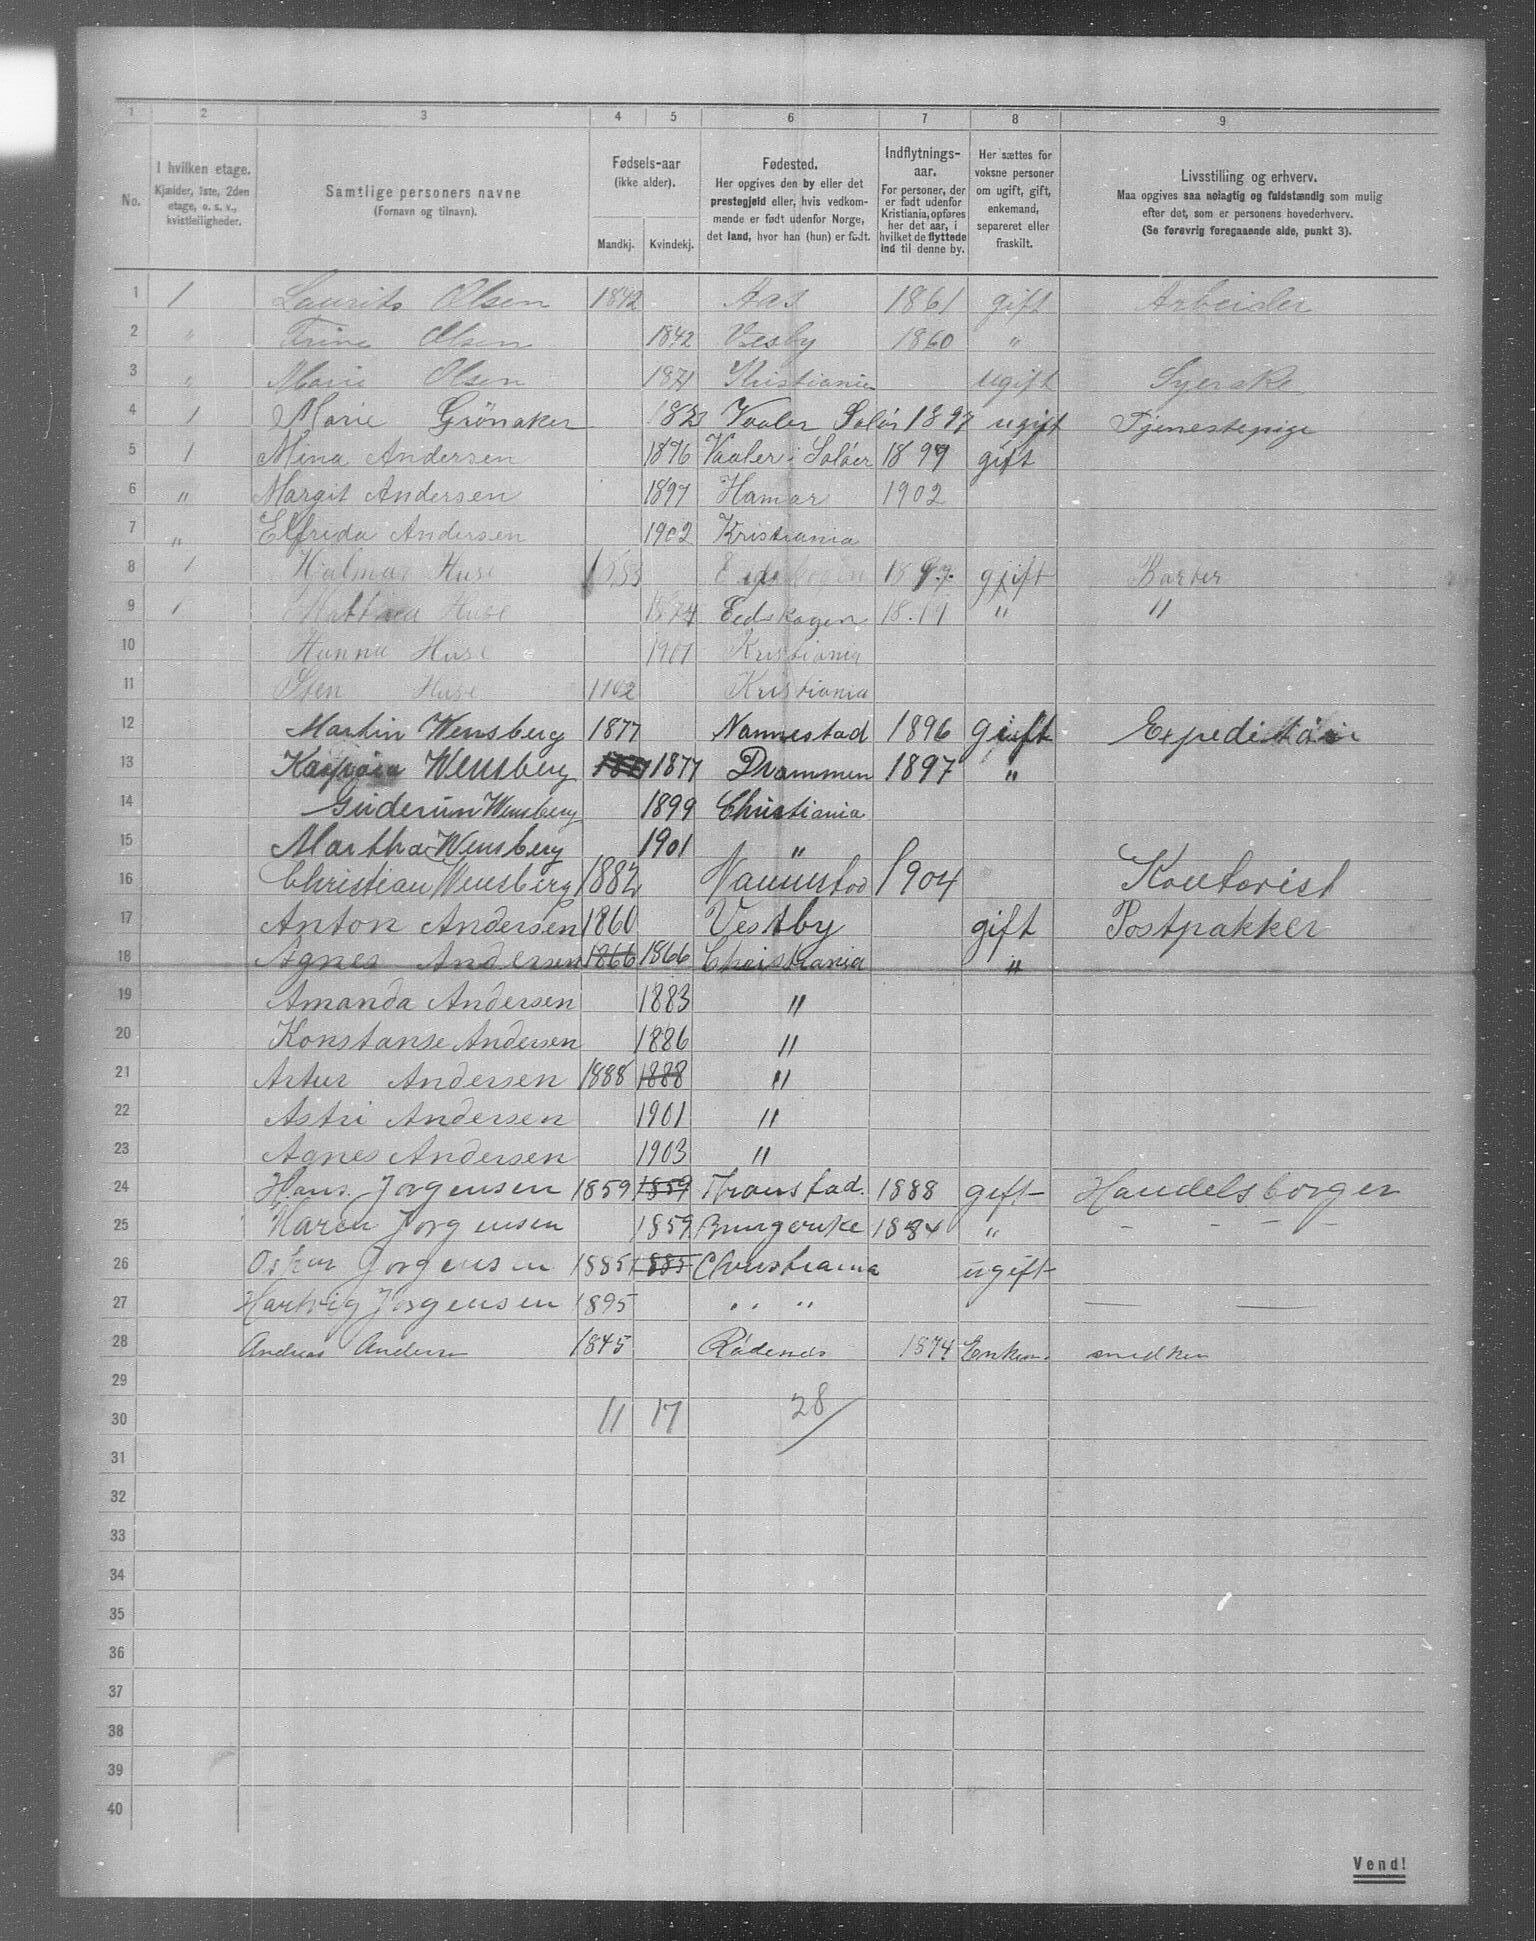 1 2 3 4 5 6 7 8 9
No.
I hvilken etage.
Kjælder, 1ste, 2den
etage, o. s. v.,
kvistleiligheder.
Samtlige personers navne
(Fornavn og tilnavn).
Fødsels-aar
(ikke alder).
Mandkj. Kvindekj.
Fødested.
Her opgives den by eller det
prestegjeld eller, hvis vedkom-
mende er født udenfor Norge,
det land, hvor han (hun) er født.
Indflytnings-
aar.
For personer, der
er født udenfor
Kristiania, opføres
her det aar, i
hvilket de flyttede
ind til denne by.
Her sættes for
voksne personer
om ugift, gift,
enkemand,
separeret eller
fraskilt.
Livsstilling og erhverv.
Maa opgives saa nøiagtig og fuldstændig som mulig
efter det, som er personens hovederhverv.
(Se forøvrig foregaaende side, punkt 3).
1 1 Laurits Olsen 1842 Aas 1861 gift Arbeider
2 " Trine Olsen 1842 Vesby 1860 "
3 " Marie Olsen 1871 Kristiania ugift Syerske
4 1 Marie Grönaker Vaaler Solör 1897 ugift Tjenestepige
5 1 Mina Andersen 1876 Vaaler i Solöer 1899 gift
6 " Margit Andersen 1897 Hamar 1902
7 " Elfrida Andersen 1902 Kristiania
8 1 Hjalmar Huse gift Barber
9 1 Huse 1874 Eedskogen " "
10 Hanna Huse 1901 Kristiania
11 Sten Huse 1902 Kristiania
12 Martin Wensberg 1877 Nannestad 1896 gift Expeditör
13 Wensberg 1877 Drammen 1897 "
14 Guderun Wensberg 1899 Christiania
15 Martha Wensberg 1901 "
16 Christian Wensberg 1882 Nannestad 1904 Kontorist
17 Anton Andersen 1860 Vestby gift Postpakker
18 Agnes Andersen 1866 1866 Christiania "
19 Amanda Andersen 1883 "
20 Konstanse Andersen 1886 "
21 Artur Andersen 1888 1888 "
22 Astri Andersen 1901 "
23 Agnes Andersen 1903 "
24 Hans Jorgensen 1859 1859 Tronstad. 1888 gift Handelsborger
25 Karen Jorgensen 1859 1884 " - - - -
26 Oskar Jorgensen 1885 1885 Christiania ugift
27 Hartvig Jorgensen 1895 " "
28 Andreas Andersen 1845 Rödenes 1874 Enkem. snedker
29
30 11 17 28
31
32
33
34
35
36
37
38
39
40
Vend!